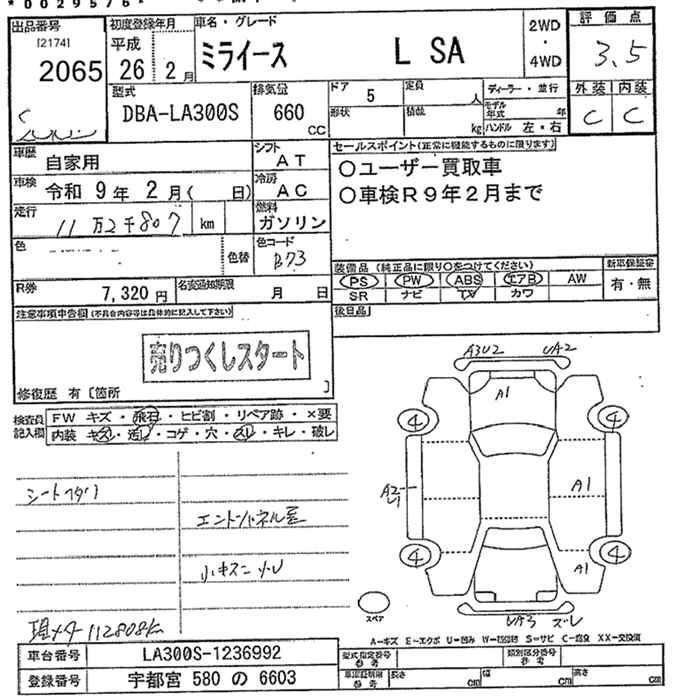 *0029576*
出品番号
[2174]
2065
初度登録年月
平成
26 2月
車名・グレード
ミライース L SA
2WD
・
4WD
評価点
3.5
外装 内装
C C
型式
DBA-LA300S
排気量
660
CC
ドア
5
形状
定員
人
積載
kg
ディーラー・並行
モデル年式 年
ハンドル 左・右
車歴
自家用
シフト
AT
車検
令和 9年 2月( 日)
冷房
AC
走行
11万2千807 km
燃料
ガソリン
色
色替
色コード
B73
R券
7,320円
名変通知期限
月 日
セールスポイント(正常に機能するものに限ります)
○ユーザー買取車
○車検R9年2月まで
装備品(純正品に限り○をつけてください)
PS PW ABS エアB AW
SR ナビ TV カワ
新車保証書
有・無
後日品
注意事項申告欄(不具合内容等は具体的に記入して下さい)
売りつくしスタート
修復歴 有 [箇所 ]
検査員
記入欄
FW キズ・飛石・ヒビ割・リペア跡・×要
内装 キズ・汚レ・コゲ・穴・スレ・キレ・破レ
シートヘタリ
小キズ
現メーター112808km
A3U2 UA2
A1
4 4
A2
U1
A1
4 4
A1
スペア
UA3 ズレ
A-キズ E-エクボ U-凹み W-補修跡 S-サビ C-腐食 XX-交換済
車台番号 LA300S-1236992
登録番号 宇都宮 580 の 6603
型式指定番号
参考
類別区分番号
参考
車庫証明用
参考
長さ cm
幅 cm
高さ cm